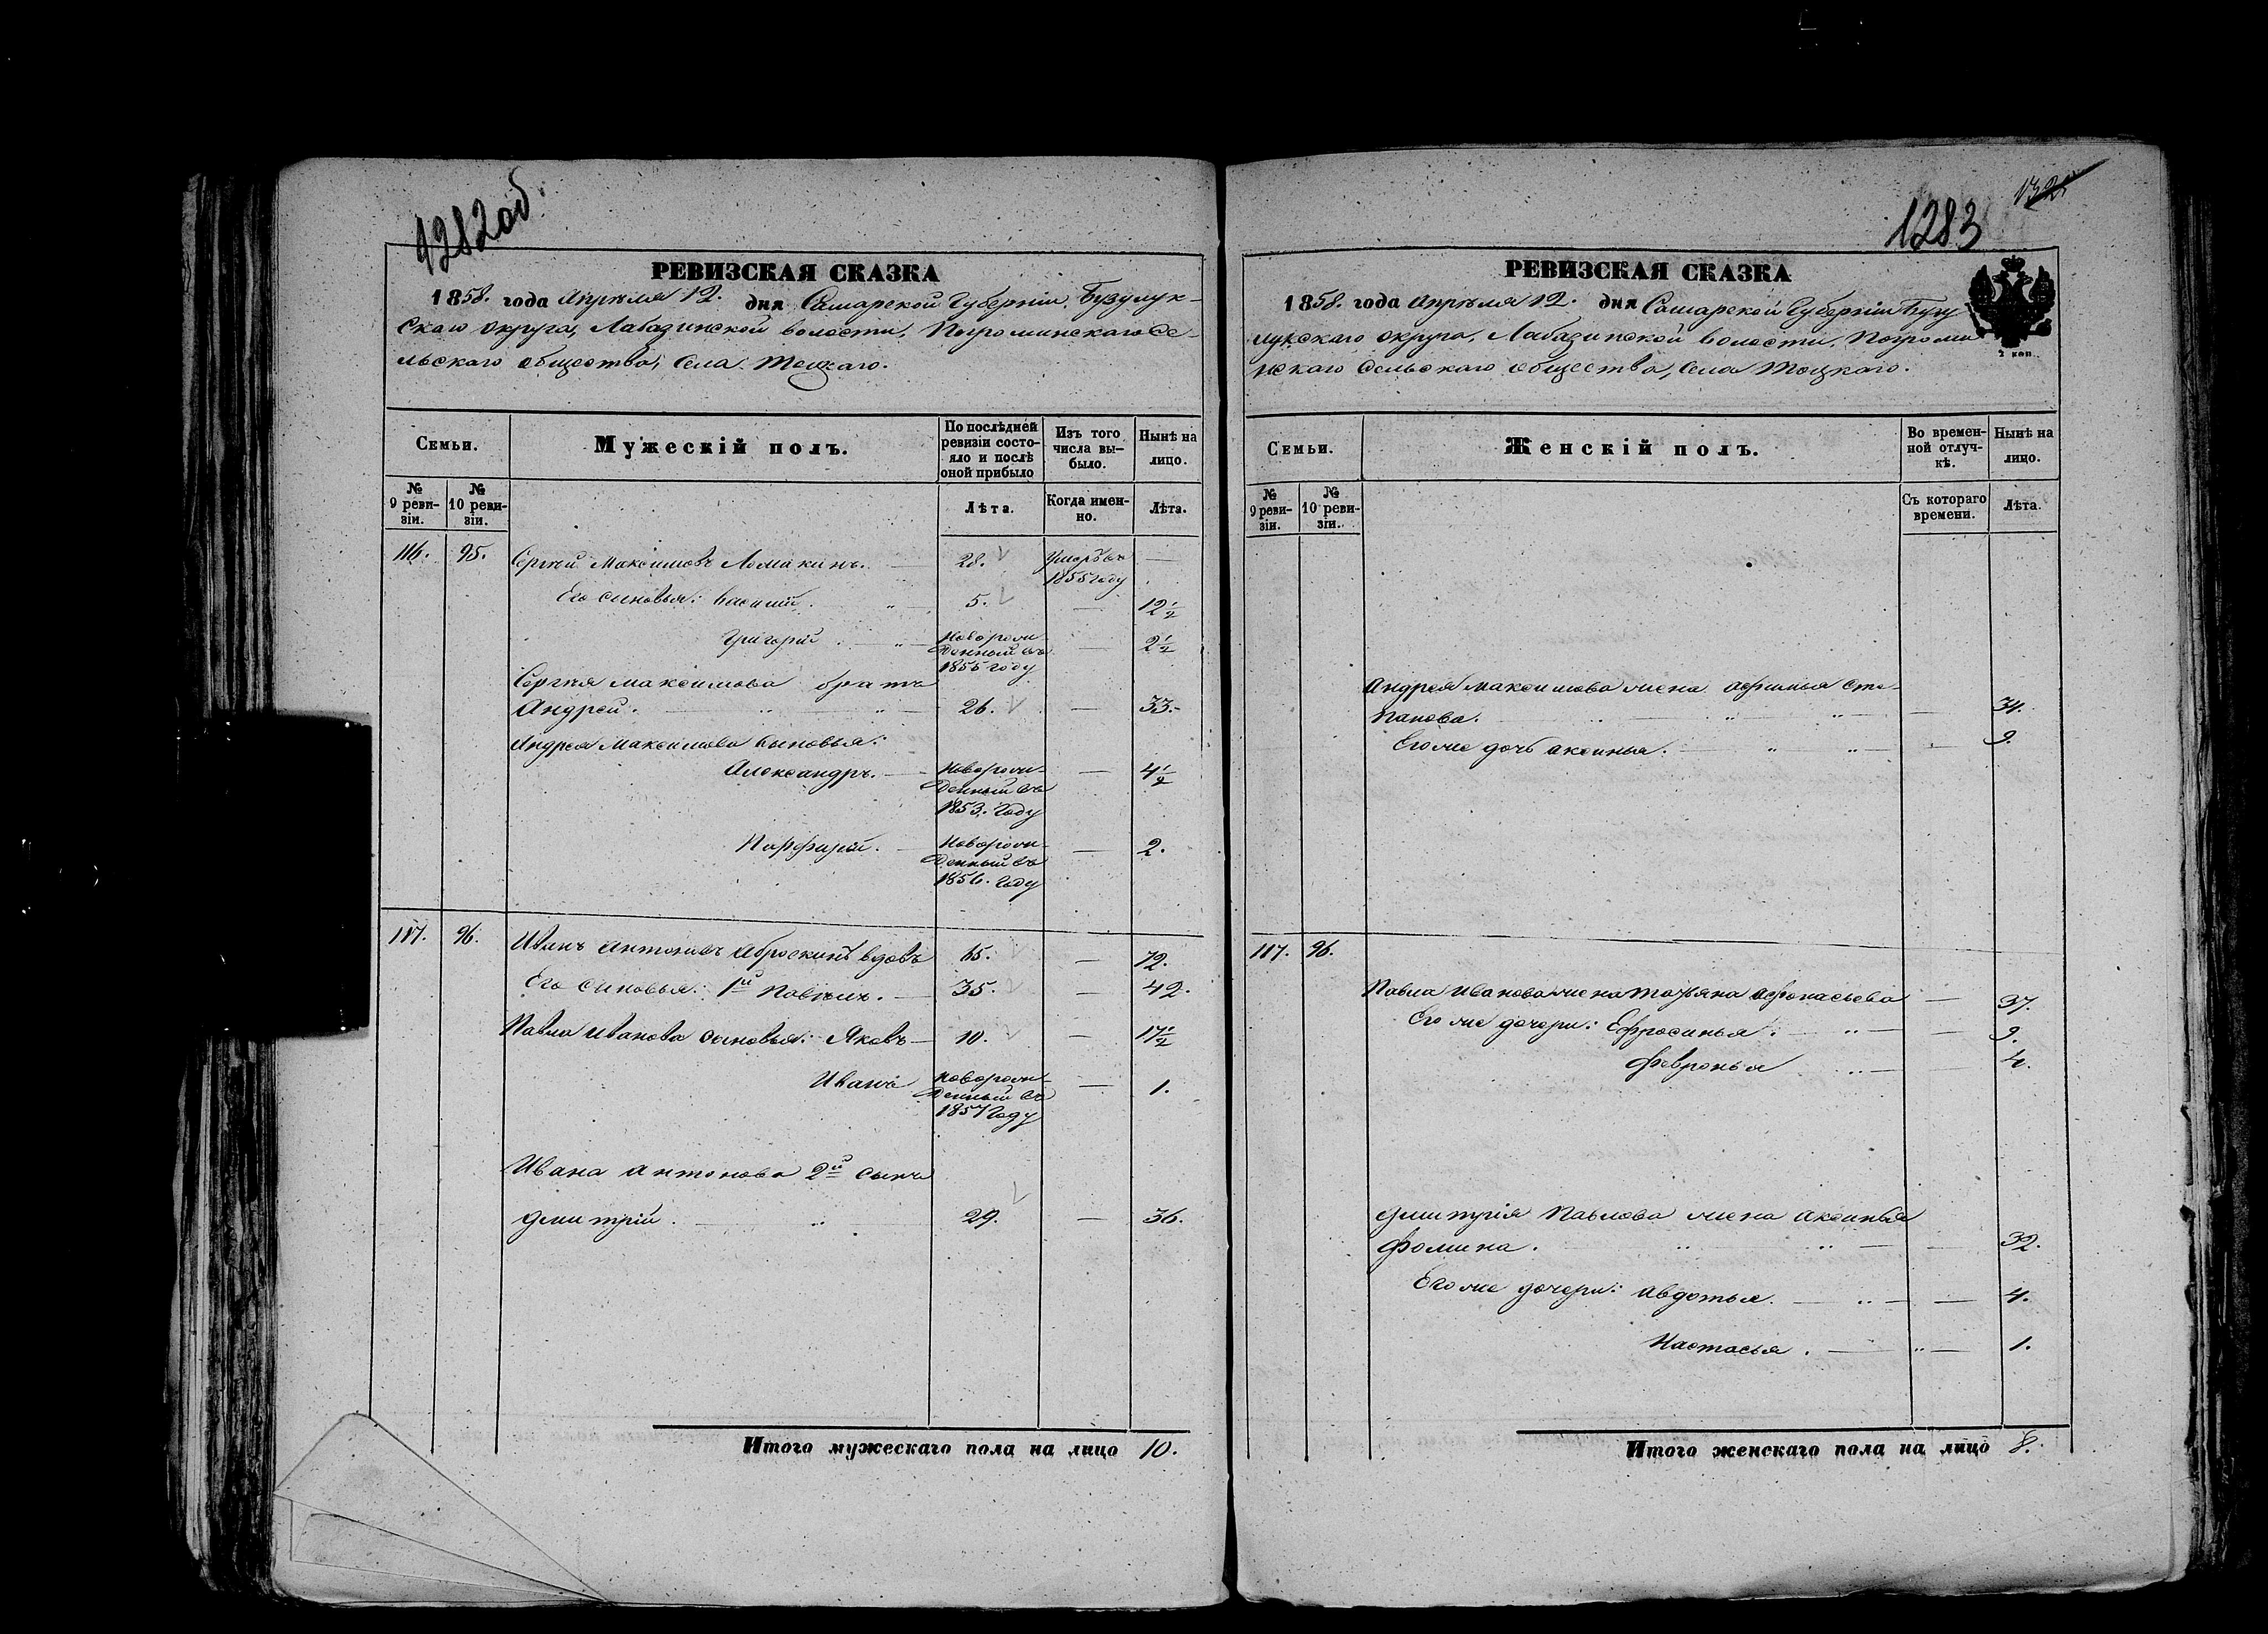 1282об.
РЕВИЗСКАЯ СКАЗКА
1858. года Апрѣля 12. дня Самарской Губерніи, Бузулук-
скаго округа, Лабазинской волости, Погроминскаго Се-
льскаго общества, Села Тоцкаго.
Семьи.
Мужескій полъ.
По послѣдней
ревизіи состо-
яло и послѣ
оной прибыло
Изъ того
числа вы-
было.
Нынѣ на
лицо.
№
9 реви-
зіи.
№
10 реви-
зіи.
Лѣта.
Когда имен-
но.
Лѣта.
116. 95. Сергѣй Максимовъ Ломакинъ. 28. Умеръ въ —
1855 году
Его сыновья: Василій. 5. — 12½
Григорій. Новорож- — 2½
денный въ
1855 году
Сергѣя Максимова братъ
Андрей. 26. — 33.
Андрея Максимова сыновья:
Александръ. Новорож- — 4½
денный въ
1853. году
Порфирій. Новорож- — 2.
денный въ
1856. году
117. 96. Иванъ Антоновъ Аброскинъ вдовъ 65. — 72.
Его сыновья: 1й Павелъ. 35. — 42.
Павла Иванова сыновья: Яковъ 10. — 17½
Иванъ Новорож- — 1.
денный въ
1857 году
Ивана Антонова 2й сынъ
Дмитрій. 29. — 36.
Итого мужескаго пола на лицо 10.
132
1283
РЕВИЗСКАЯ СКАЗКА
1858. года Апрѣля 12. дня Самарской Губерніи Бузу
лукскаго округа, Лабазинской волости, Погроми
нскаго Сельскаго общества, Села Тоцкаго.
2 коп.
Семьи.
Женскій полъ.
Во времен-
ной отлуч-
кѣ.
Нынѣ на
лицо.
№
9 реви-
зіи.
№
10 реви-
зіи.
Съ котораго
времени.
Лѣта.
Андрея Максимова жена Афимья Сте-
панова. — 34.
Его же дочь Аксинья. — 9.
117. 96.
Павла Иванова жена Татьяна Афонасьева — 37.
Его же дочери: Ефросинья. — 9.
Февронья — 4.
Дмитрія Павлова жена Аксинья
Фомина. — 32.
Его же дочери: Авдотья. — 4.
Настасья. — 1.
Итого женскаго пола на лицо 8.